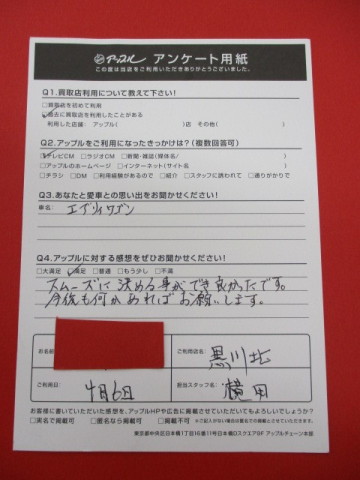 アップル アンケート用紙
この度は当店をご利用いただきありがとうございました。
Q1.買取店利用について教えて下さい!
□買取店を初めて利用
□過去に買取店を利用したことがある
利用した店舗: アップル( )店 その他( )
Q2.アップルをご利用になったきっかけは?(複数回答可)
□テレビCM □ラジオCM □新聞・雑誌(媒体名/ )
□アップルのホームページ □インターネット(サイト名 )
□チラシ □DM □利用経験があるので □紹介 □スタッフに誘われて □通りがかりで
Q3.あなたと愛車との思い出をお聞かせください!
車名: エブリィワゴン
Q4.アップルに対する感想をぜひお聞かせください!
□大満足 □満足 □普通 □もう少し □不満
スムーズに決める事ができ良かったです。
今後も何かあればお願いします。
お名前
ご利用店名: 黒川北
ご利用日: 9月6日
担当スタッフ名:
お客様に書いていただいた感想を、アップルHPや広告に掲載させていただいてもよろしいでしょうか?
□実名で掲載可 □匿名なら掲載可 □掲載不可
東京都中央区日本橋1丁目16番11号日本橋Dスクエア6F アップルチェーン本部